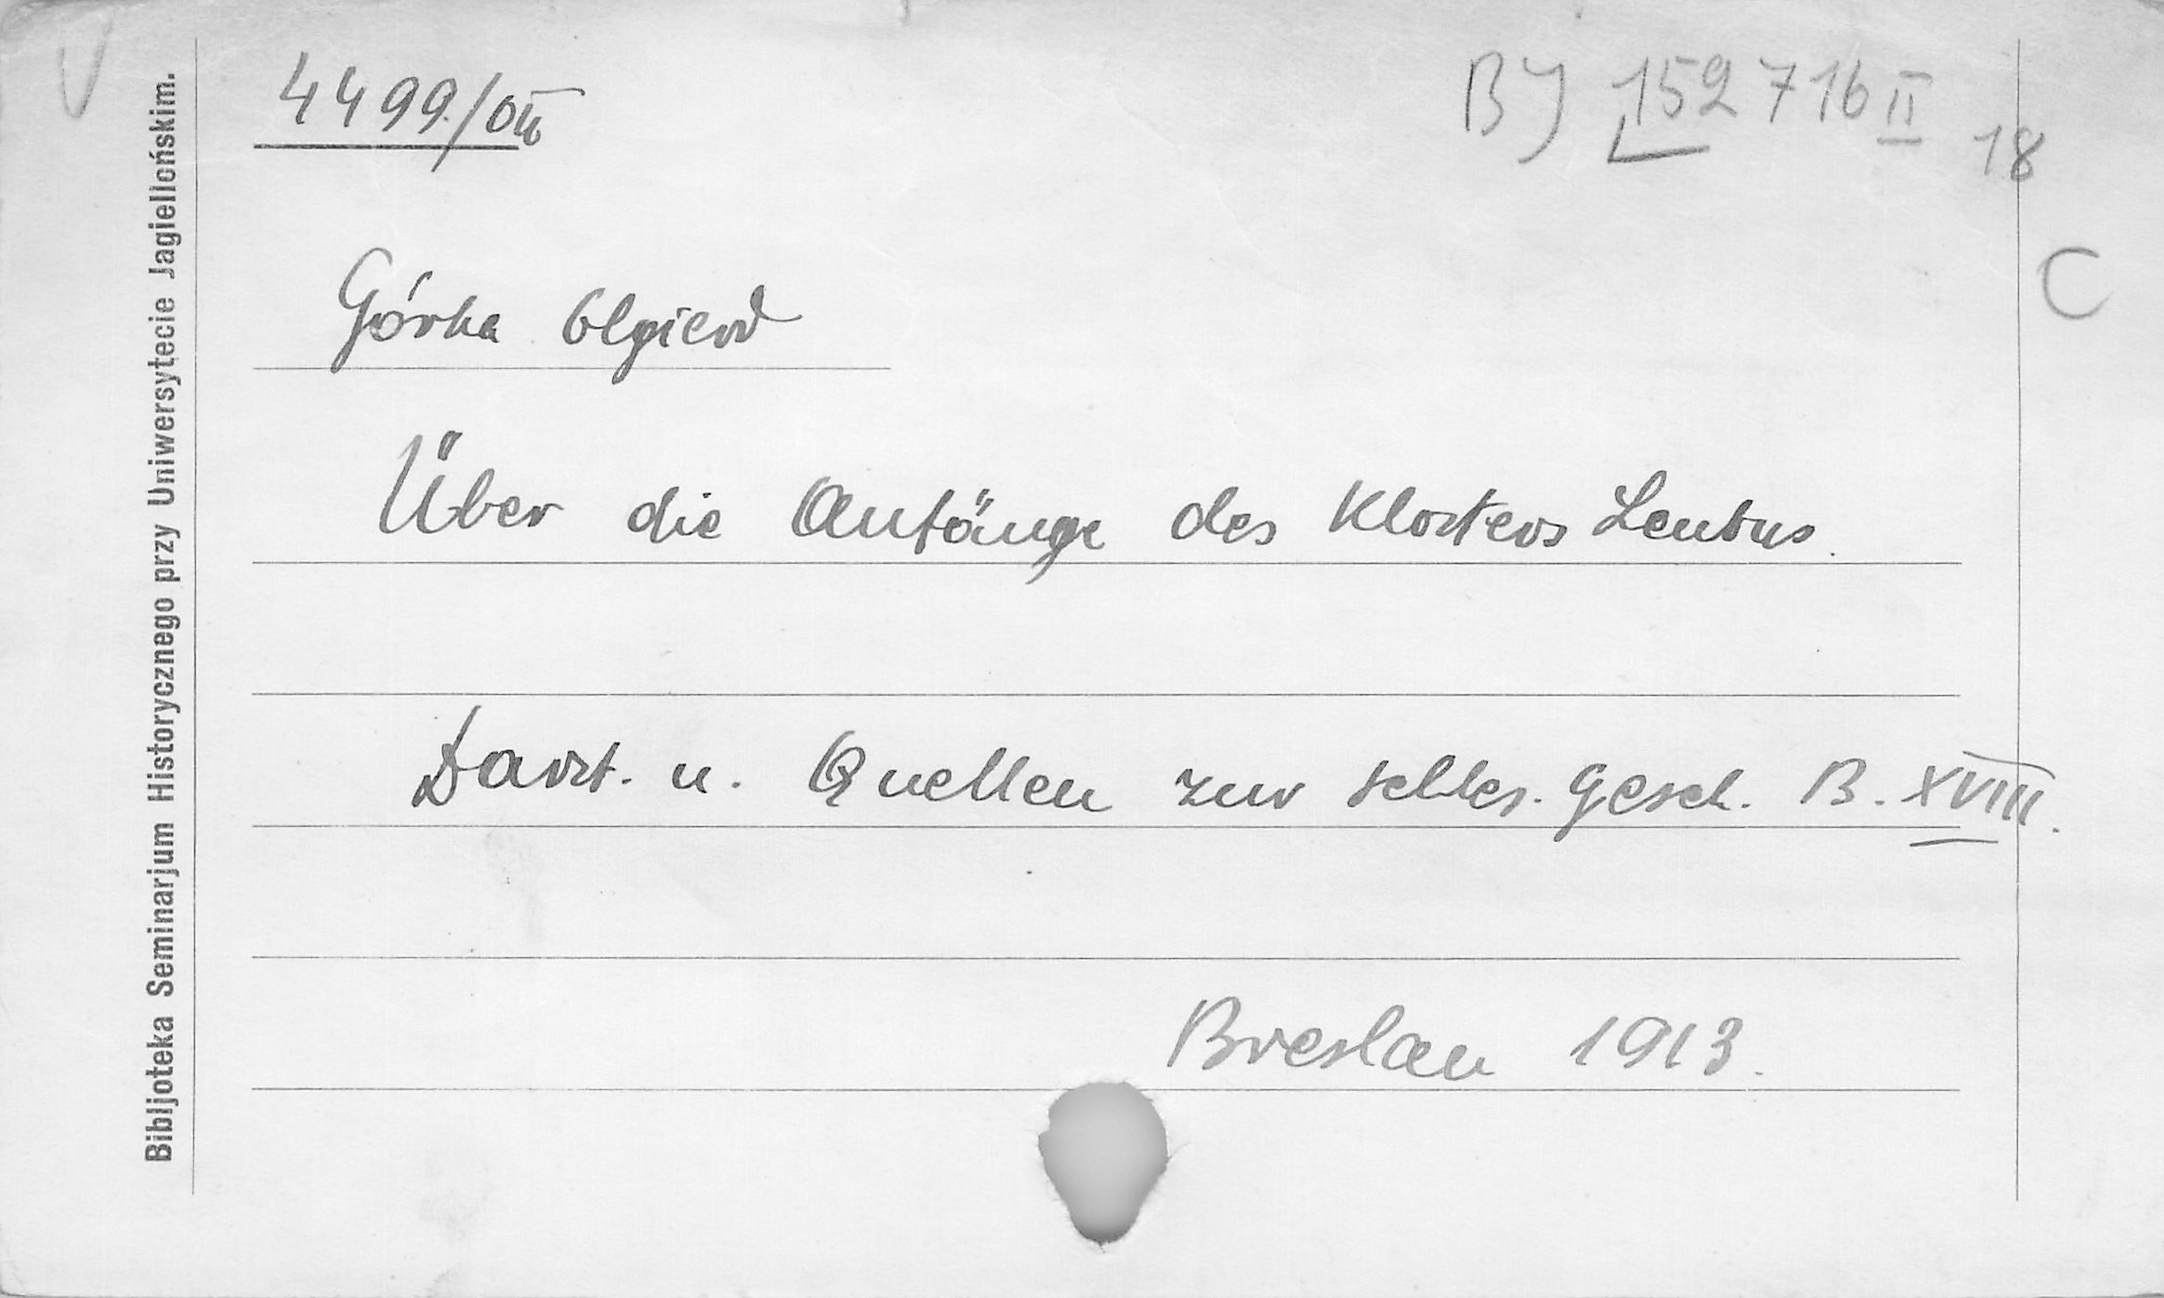 V
4499/OIII
BJ 152716 II
18
C
Górka Olgierd
Über die Anfänge des Klosters Leubus.
Darst. u. Quellen zur schles. Gesch. B. XVIII.
Breslau 1913.
Bibljoteka Seminarjum Historycznego przy Uniwersytecie Jagiellońskim.